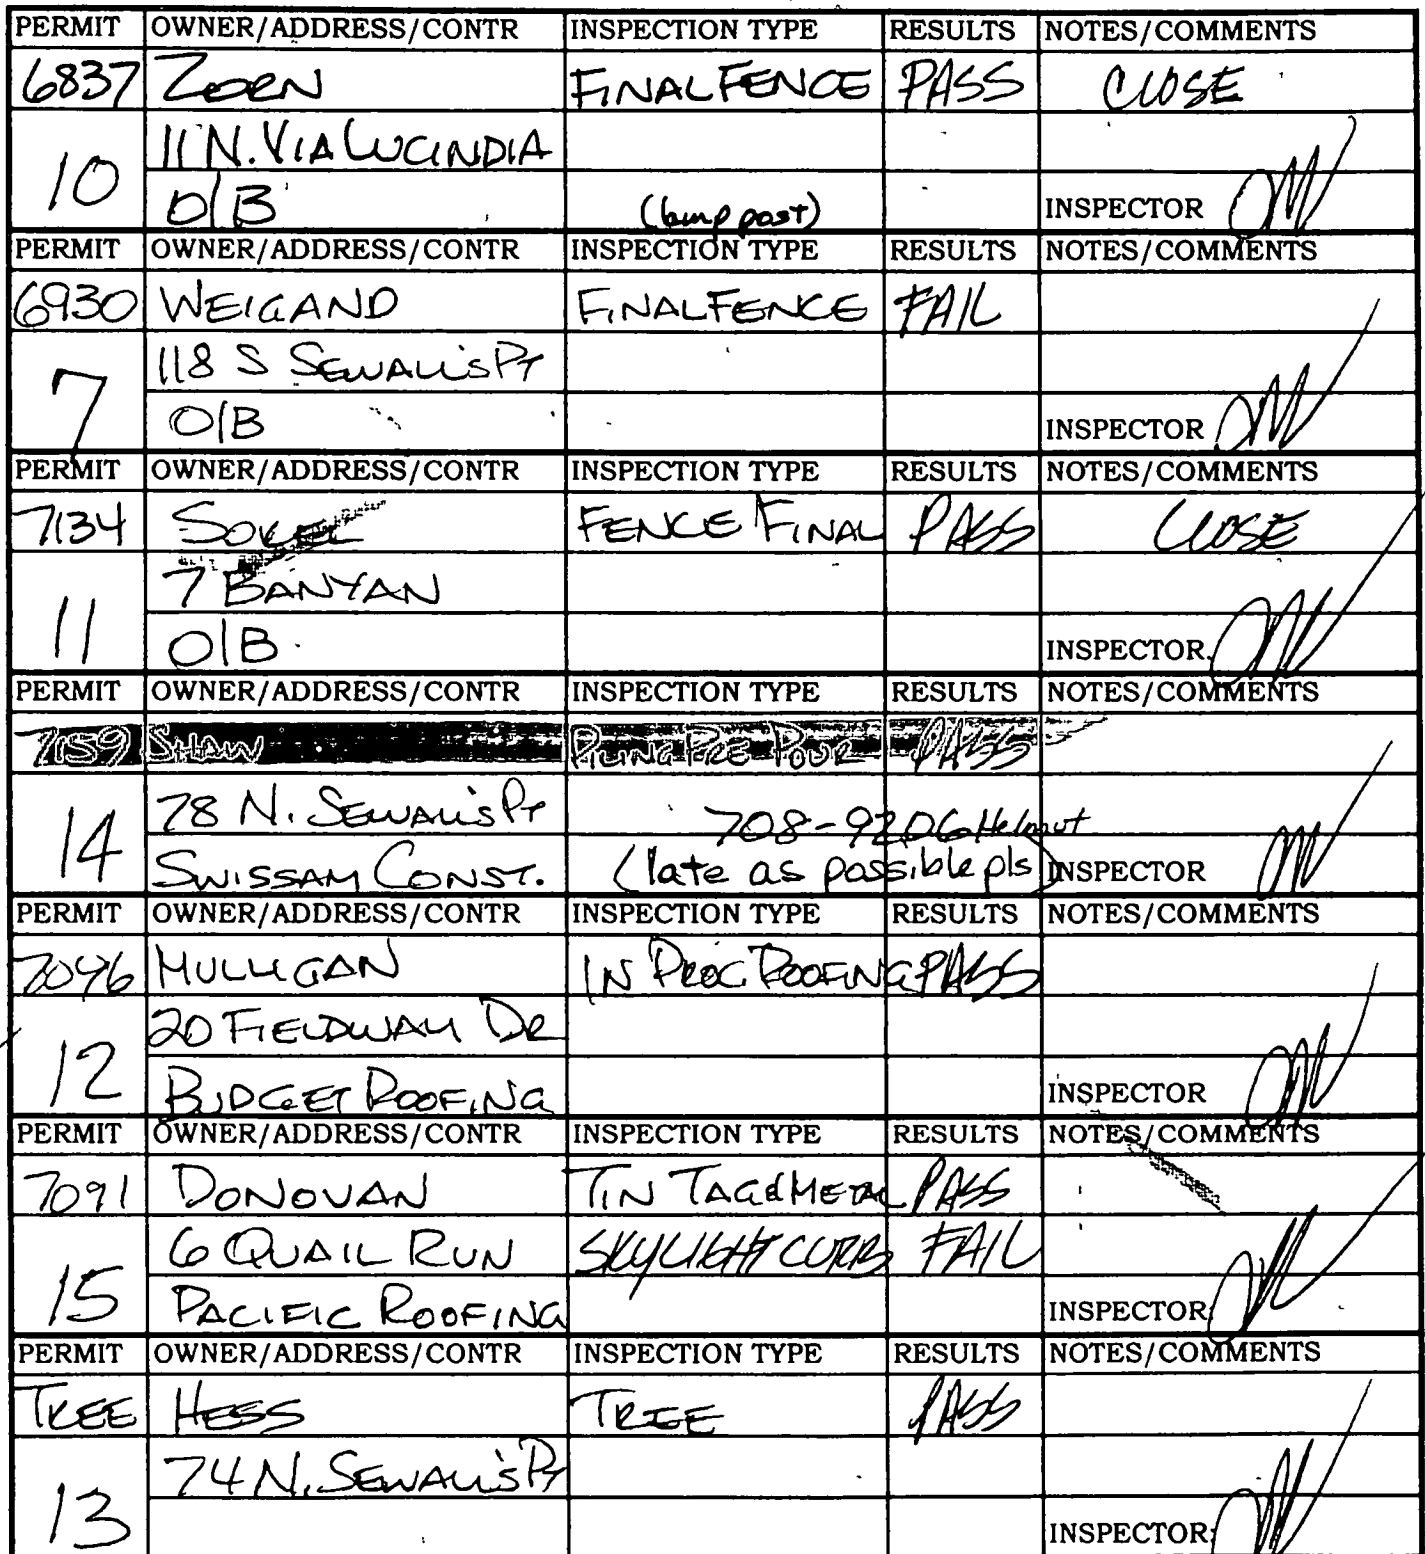 PERMIT OWNER/ADDRESS/CONTR INSPECTION TYPE RESULTS NOTES/COMMENTS
6837 ZORN FINAL FENCE PASS CLOSE
11 N. VIA LUCINDIA
10 O/B (lamp post) INSPECTOR
PERMIT OWNER/ADDRESS/CONTR INSPECTION TYPE RESULTS NOTES/COMMENTS
6930 WEIGAND FINAL FENCE FAIL
118 S SEWALL'S PT
7 O/B INSPECTOR
PERMIT OWNER/ADDRESS/CONTR INSPECTION TYPE RESULTS NOTES/COMMENTS
7134 FENCE FINAL PASS CLOSE
7 BANYAN
11 O/B INSPECTOR
PERMIT OWNER/ADDRESS/CONTR INSPECTION TYPE RESULTS NOTES/COMMENTS
7159 SHAW PILING PRE POUR PASS
78 N. SEWALL'S PT 708-9206 Helmut
14 SWISSAM CONST. (late as possible pls) INSPECTOR
PERMIT OWNER/ADDRESS/CONTR INSPECTION TYPE RESULTS NOTES/COMMENTS
7096 MULLIGAN IN PROG ROOFING PASS
20 FIELDWAY DR
12 BUDGET ROOFING INSPECTOR
PERMIT OWNER/ADDRESS/CONTR INSPECTION TYPE RESULTS NOTES/COMMENTS
7091 DONOVAN TIN TAG & METAL PASS
6 QUAIL RUN SKYLIGHT CURB FAIL
15 PACIFIC ROOFING INSPECTOR
PERMIT OWNER/ADDRESS/CONTR INSPECTION TYPE RESULTS NOTES/COMMENTS
TREE HESS TREE PASS
74 N. SEWALL'S PT
13 INSPECTOR